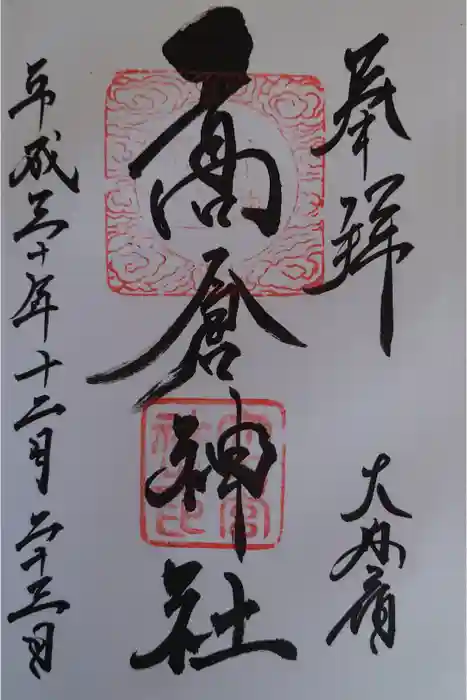 奉拝
高倉神社
平成三十年十二月二十三日